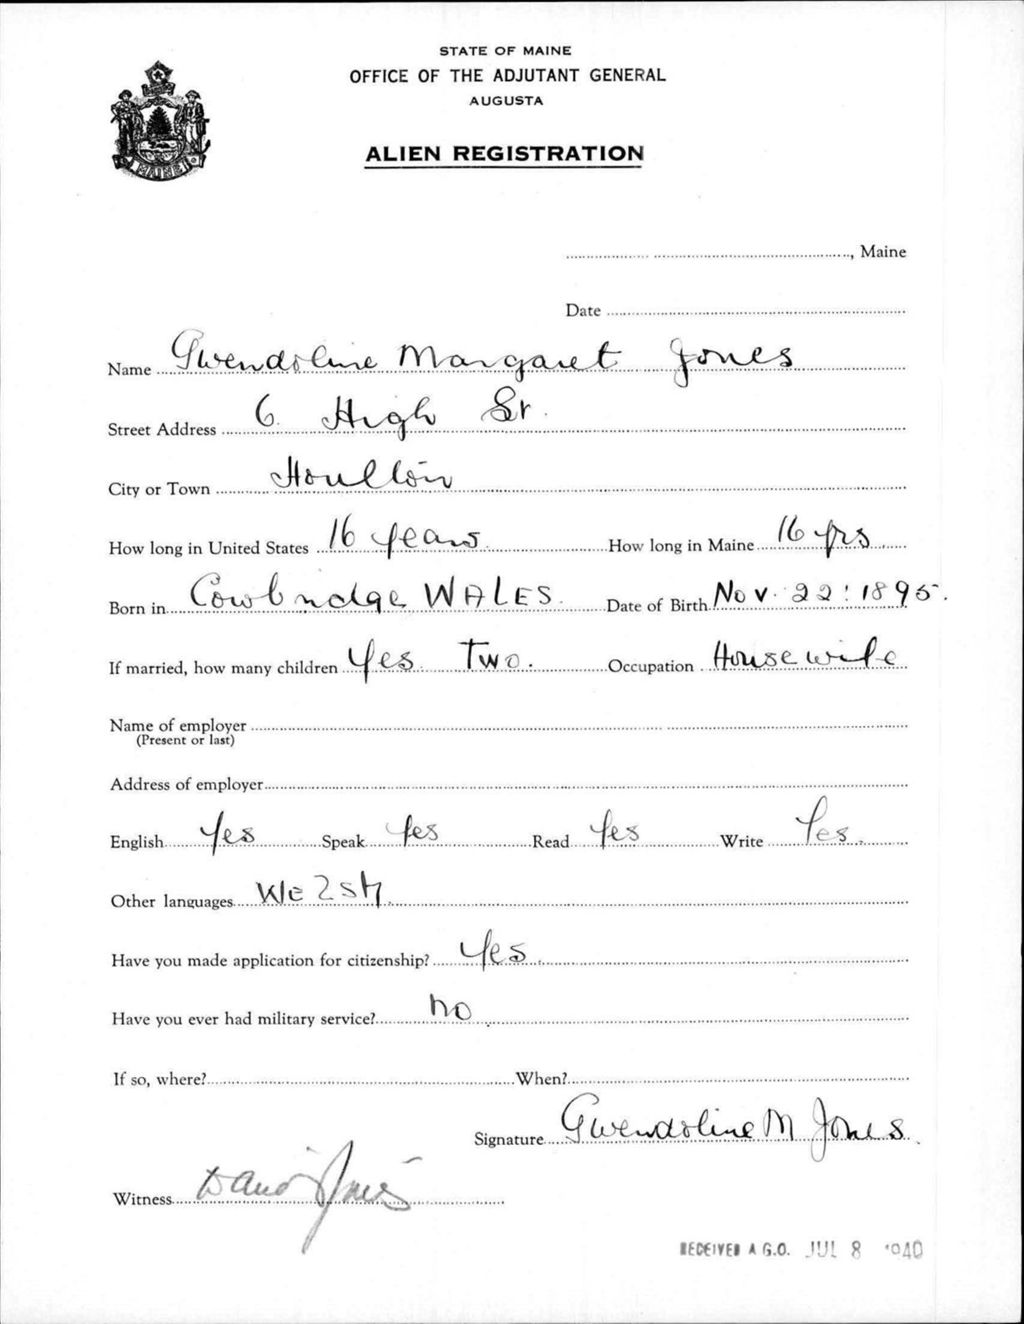 STATE OF MAINE
OFFICE OF THE ADJUTANT GENERAL
AUGUSTA
ALIEN REGISTRATION
MAINE
, Maine
Date
Name Gwendoline Margaret Jones
Street Address 6 High St.
City or Town Houlton
How long in United States 16 years. How long in Maine 16 yrs
Born in Cowbridge WALES. Date of Birth Nov. 22: 1895.
If married, how many children Yes. Two. Occupation Housewife
Name of employer
(Present or last)
Address of employer
English Yes Speak Yes Read Yes Write Yes.
Other languages WELSH.
Have you made application for citizenship? Yes.
Have you ever had military service? No
If so, where? When?
Signature Gwendoline M Jones.
Witness David Jones
RECEIVED A.G.O. JUL 8 1940